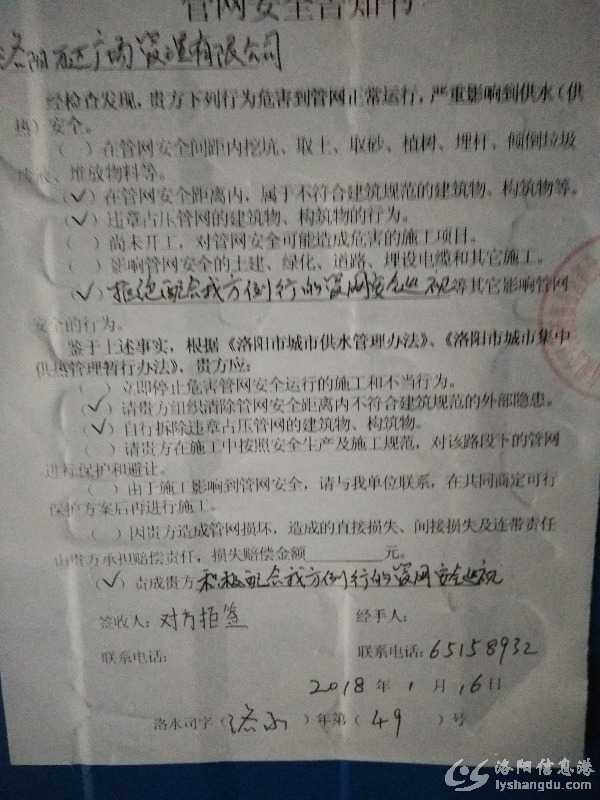 管网安全告知书
洛阳 广场管理有限公司
经检查发现，贵方下列行为危害到管网正常运行，严重影响到供水（供
热）安全。
（ ）在管网安全间距内挖坑、取土、取砂、植树、埋杆、倾倒垃圾
、堆放物料等。
（✓）在管网安全距离内，属于不符合建筑规范的建筑物、构筑物等。
（✓）违章占压管网的建筑物、构筑物的行为。
（ ）尚未开工，对管网安全可能造成危害的施工项目。
（ ）影响管网安全的土建、绿化、道路、埋设电缆和其它施工。
（✓）拒绝配合我方例行的管网安全巡视等其它影响管网
安全的行为。
鉴于上述事实，根据《洛阳市城市供水管理办法》、《洛阳市城市集中
供热管理暂行办法》，贵方应：
（ ）立即停止危害管网安全运行的施工和不当行为。
（✓）请贵方组织清除管网安全距离内不符合建筑规范的外部隐患。
（✓）自行拆除违章占压管网的建筑物、构筑物。
（ ）请贵方在施工中按照安全生产及施工规范，对该路段下的管网
进行保护和避让。
（ ）由于施工影响到管网安全，请与我单位联系，在共同商定可行
保护方案后再进行施工。
（ ）因贵方造成管网损坏，造成的直接损失、间接损失及连带责任
由贵方承担赔偿责任，损失赔偿金额________元。
（✓）责成贵方积极配合我方例行的管网安全巡视
签收人：对方拒签 经手人：
联系电话： 联系电话：65158932
2018 年 1 月 16 日
洛水司字（洛水）年第（49）号
洛阳信息港
lyshangdu.com